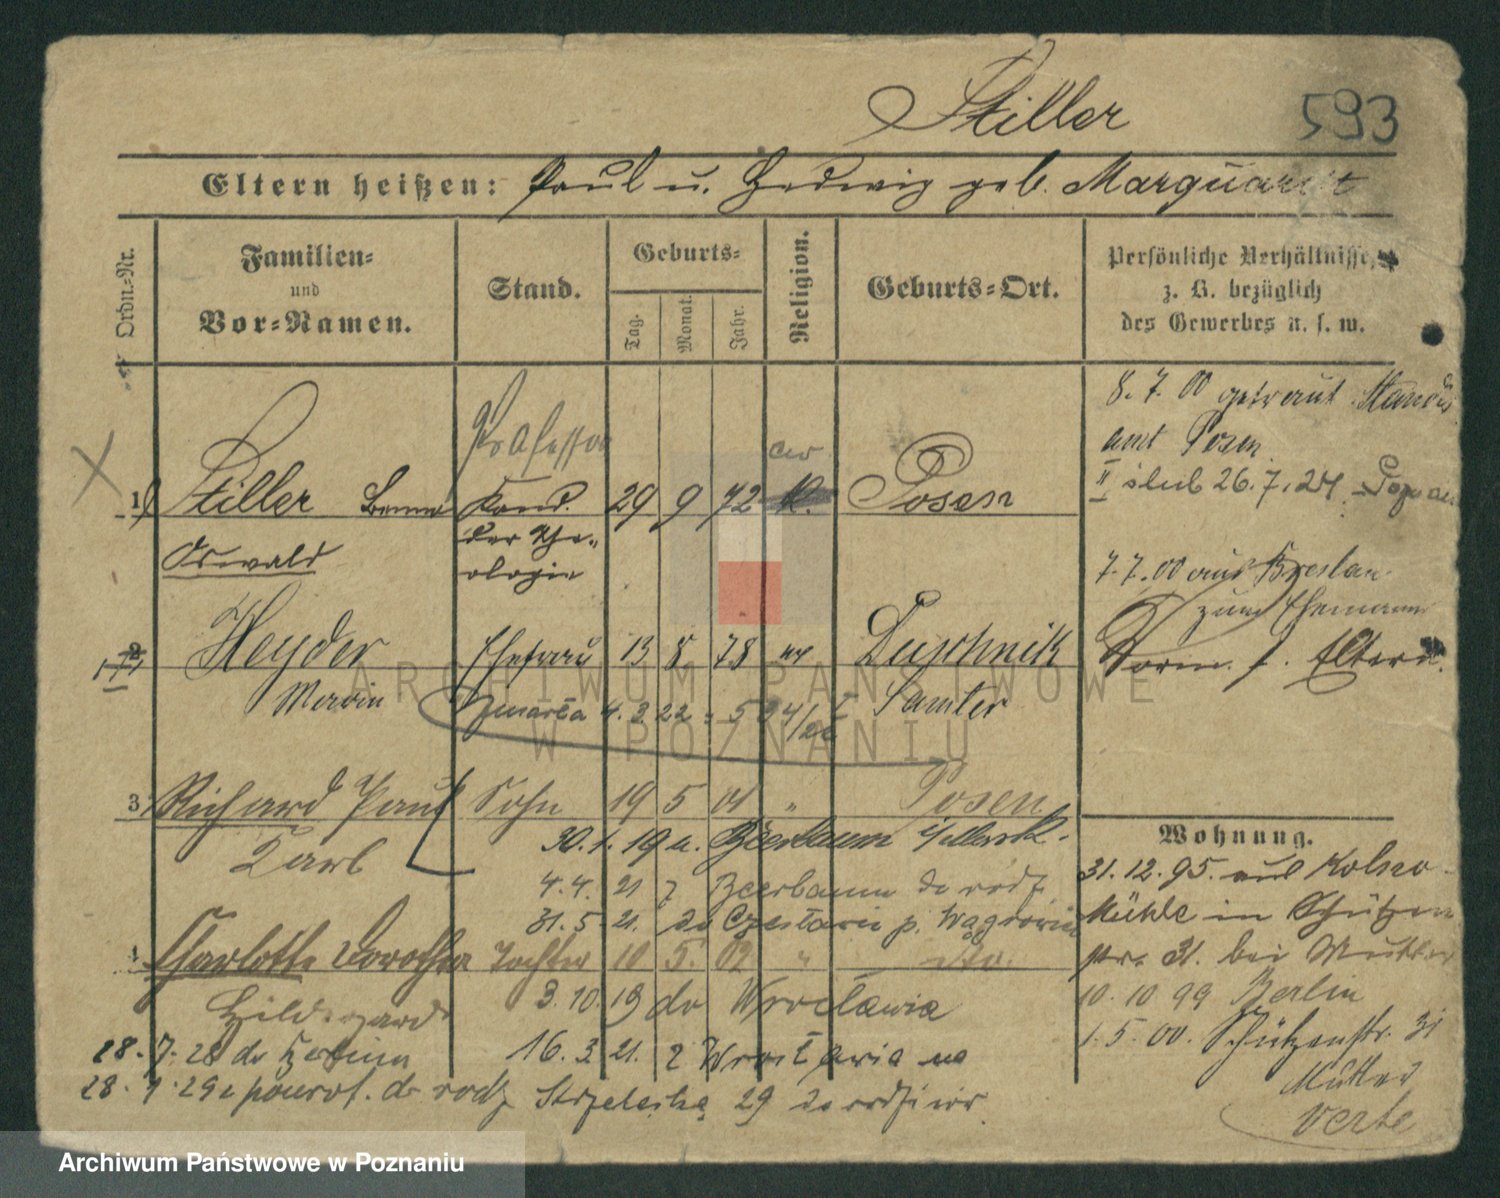 Stiller
593
Eltern heißen: Paul u. Hedwig geb. Marquardt
Ordn.-Nr.
Familien-
und
Vor-Namen.
Stand.
Geburts-
Tag.
Monat.
Jahr.
Religion.
Geburts-Ort.
Persönliche Verhältnisse,
z. B. bezüglich
des Gewerbes u. s. w.
8. 7. 00 getraut Standes
amt Posen
II ślub 26.7.24
Professor
1 Stiller Kand. 29 9 72 Posen
Oswald
der The-
ologie
7.7.00 aus Breslau
zum Ehemann
2 Heyder Ehefrau 13 8 78 Duschnik
Vorm. s. Eltern.
zmarła 4. 3. 22 Samter
3 Richard Paul Sohn 19 5 01 " Posen
Carl
30. 1. 19 u. Beerbaum
4. 4. 21 z Beerbaum do rodz
31. 5. 21. do p. Wągrowiec
4 Charlotte Dorothea Tochter 10 5. 02 " dto.
Hildegard
3. 10. 19 do Wrocławia
28. 7. 28 do Berlina
16. 3. 21. z Wrocławia
28. 9. 29 z powrot. do rodz Strzelecka 29
Wohnung.
31. 12. 95. aus
Mühle in Schützen
str. 31. bei Mutter
10. 10 99 Berlin
1. 5. 00. Schützenstr. 31
Mutter
verte
ARCHIWUM PAŃSTWOWE
W POZNANIU
Archiwum Państwowe w Poznaniu